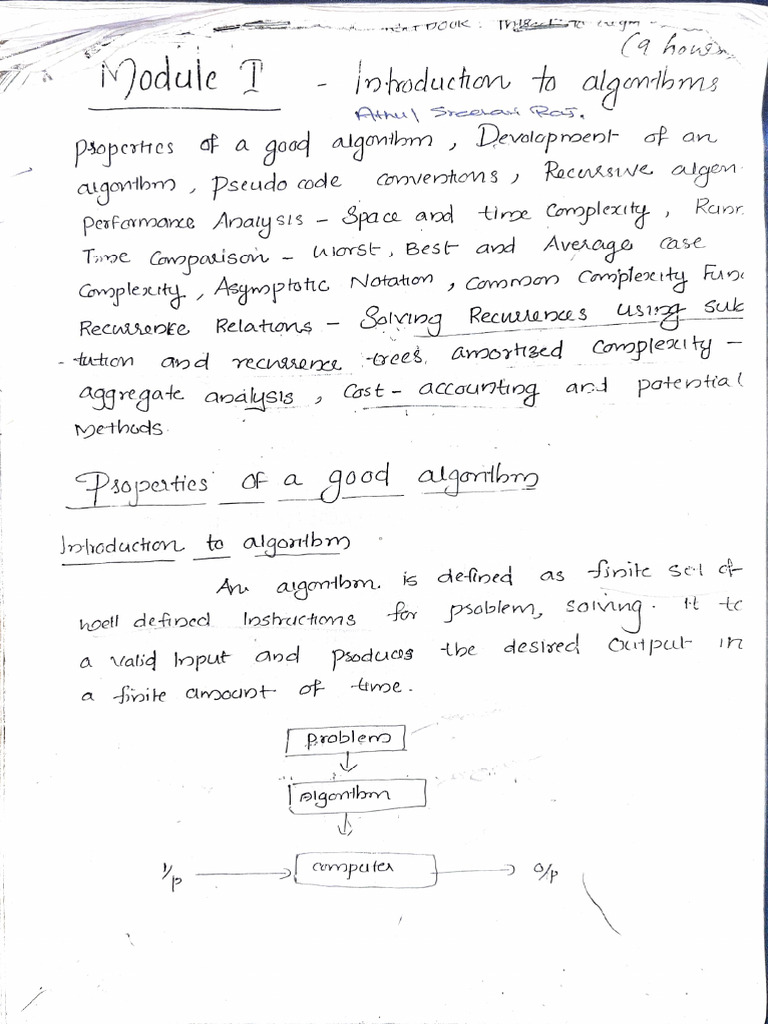 (9 hours
Module I - Introduction to algorithms
Athul Sreelal Raj.
Properties of a good algorithm, Development of an
algorithm, Pseudo code conventions, Recursive algori
Performance Analysis - Space and time Complexity, Runn
Time Comparison - Worst, Best and Average case
Complexity, Asymptotic Notation, common complexity Func
Recurrence Relations - Solving Recurrences using sub
-tution and recurrence trees, amortized complexity -
aggregate analysis, cost-accounting and potential
Methods.
Properties of a good algorithm
Introduction to algorithm
An algorithm is defined as finite set of
well defined Instructions for problem, solving. It ta
a valid Input and produces the desired output in
a finite amount of time.
problem
algorithm
I/p computer O/p